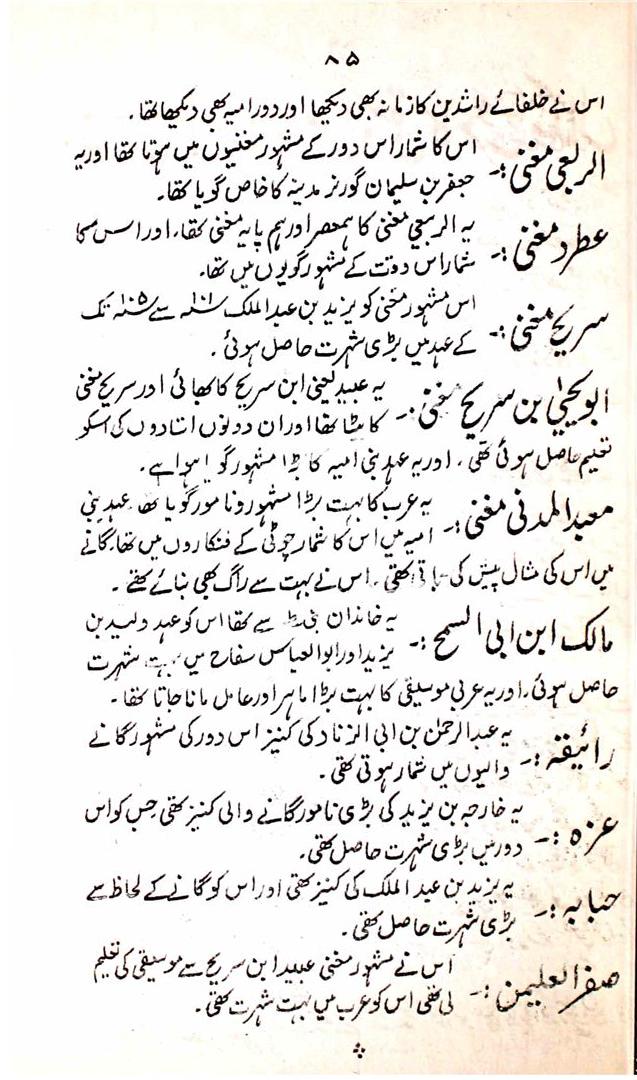 ۸۵
اس نے خلفائے راشدین کا زمانہ بھی دیکھا اور دور امیہ بھی دیکھا تھا۔
الربعی مغنی:۔ اس کا شمار اس دور کے مشہور مغنیوں میں ہوتا تھا اور یہ
جعفر بن سلیمان گورنر مدینہ کا خاص گویا تھا۔
عطرد مغنی:۔ یہ الربعی مغنی کا ہمعصر اور ہم پایہ مغنی تھا، اور اس کا
شمار اس دوت کے مشہور گویوں میں تھا۔
سریج مغنی:۔ اس مشہور مغنی کو یزید بن عبدالملک ۱۰۱ھ سے ۱۰۵ھ تک
کے عہد میں بڑی شہرت حاصل ہوئی۔
ابو یحییٰ بن سریج مغنی:۔ یہ عبید یعنی ابن سریج کا بھائی اور سریج مغنی
کا بیٹا تھا اور ان دونوں استادوں کی اسکو
تعلیم حاصل ہوئی تھی، اور یہ عہد بنی امیہ کا بڑا مشہور گویا ہوا ہے۔
معبد المدنی مغنی:۔ یہ عرب کا بہت بڑا مشہور و نامور گویا تھا عہد بنی
امیہ میں اس کا شمار چوٹی کے فنکاروں میں تھا، گانے
میں اس کی مثال پیش کی جاتی تھی، اس نے بہت سے راگ بھی بنائے تھے۔
مالک ابن ابی السمح:۔ یہ خاندان بنی سے تھا اس کو عہد ولید بن
یزید اور ابوالعباس سفاح میں بہت شہرت
حاصل ہوئی، اور یہ عربی موسیقی کا بہت بڑا ماہر اور عامل مانا جاتا تھا۔
رائیقہ:۔ یہ عبدالرحمٰن بن ابی الزناد کی کنیز اس دور کی مشہور گانے
والیوں میں شمار ہوتی تھی۔
عزہ:۔ یہ خارجہ بن یزید کی بڑی نامور گانے والی کنیز تھی جس کو اس
دور میں بڑی شہرت حاصل تھی۔
حبابہ:۔ یہ یزید بن عبدالملک کی کنیز تھی اور اس کو گانے کے لحاظ سے
بڑی شہرت حاصل تھی۔
صفر العلیمن:۔ اس نے مشہور مغنی عبید ابن سریج سے موسیقی کی تعلیم
لی تھی اس کو عرب میں بہت شہرت تھی۔